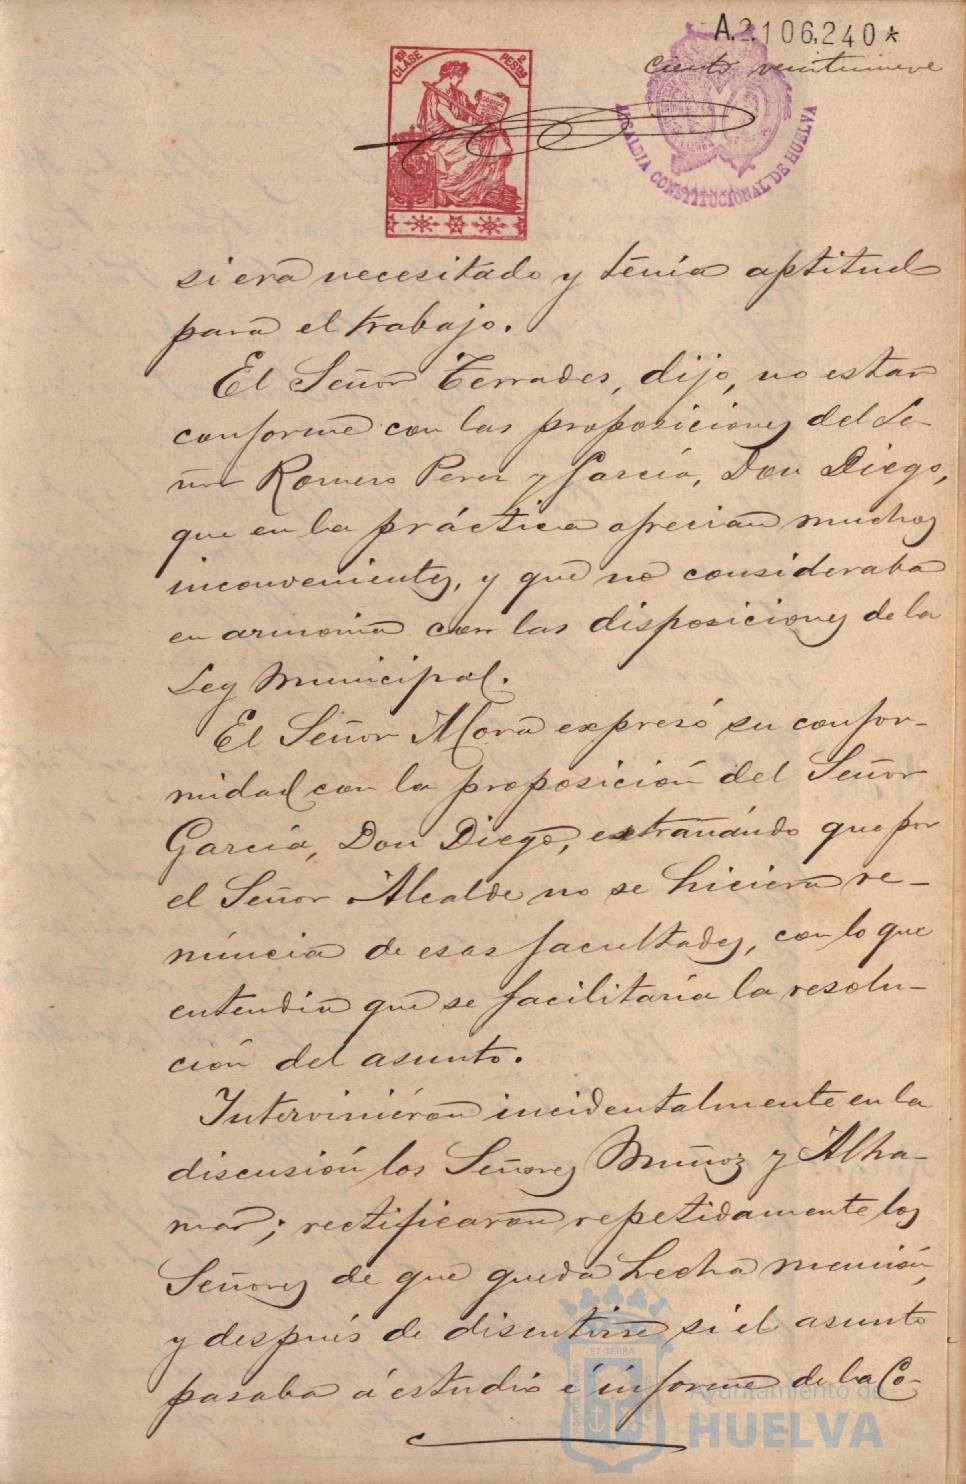 A.2.106,240*
Ciento veintinueve
10ª CLASE
2 PESTAS
CODIGO
ALCALDIA CONSTITUCIONAL DE HUELVA
si era necesitado y tenía aptitud
para el trabajo.
El Señor Terrades, dijo, no estar
conforme con las proposiciones del Se-
ñor Romero Perez y García, Don Diego,
que en la práctica ofrecian muchos
inconvenientes, y que no consideraba
en armonia con las disposiciones de la
Ley Municipal.
El Señor Mora expresó su confor-
midad con la proposición del Señor
García, Don Diego, extrañando que por
el Señor Alcalde no se hiciera re-
nuncia de esas facultades, con lo que
entendia que se facilitaría la resolu-
ción del asunto.
Intervinieron incidentalmente en la
discusión los Señores Muñoz y Alha-
mar; rectificaron repetidamente los
Señores de que queda hecha mención,
y después de discutirse si el asunto
pasaba á estudio é informe de la Co-
ET TERRA
Ayuntamiento de
HUELVA